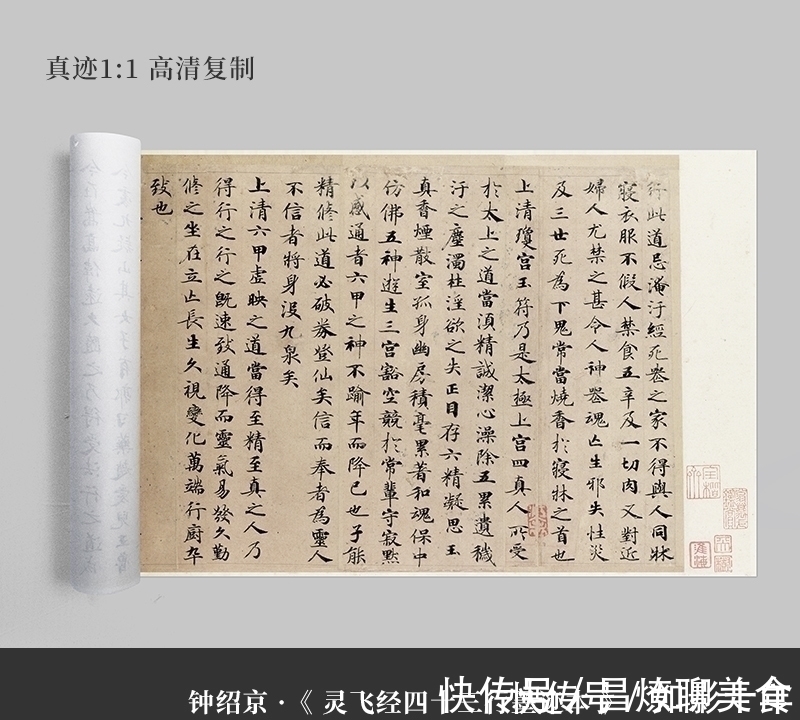 真迹1:1 高清复制
行此道忌潘汙經死喪之家不得與人同牀
寢衣服不假人禁食五辛及一切肉又對近
婦人尤禁之甚令人神喪魂亡生邪失性災
及三世死為下鬼常當燒香扵寢牀之首也
上清瓊宮玉符乃是太極上宮四真人所受
扵太上之道當湏精誠潔心澡除五累遺穢
汙之塵濁杜淫欲之失正目存六精凝思玉
真香煙散室孤身幽房積毫累著和魂保中
仿佛五神遊生三宮豁空競扵常輩守寂默
以感通者六甲之神不踰年而降已也子能
精修此道必破券登仙矣信而奉者為靈人
不信者將身沒九泉矣
上清六甲虛映之道當得至精至真之人乃
得行之行之既速致通降而靈氣易發久勤
修之坐在立亡長生久視變化萬端行廚卒
致也
钟绍京·《灵飞经四十
快传号/
聊美食